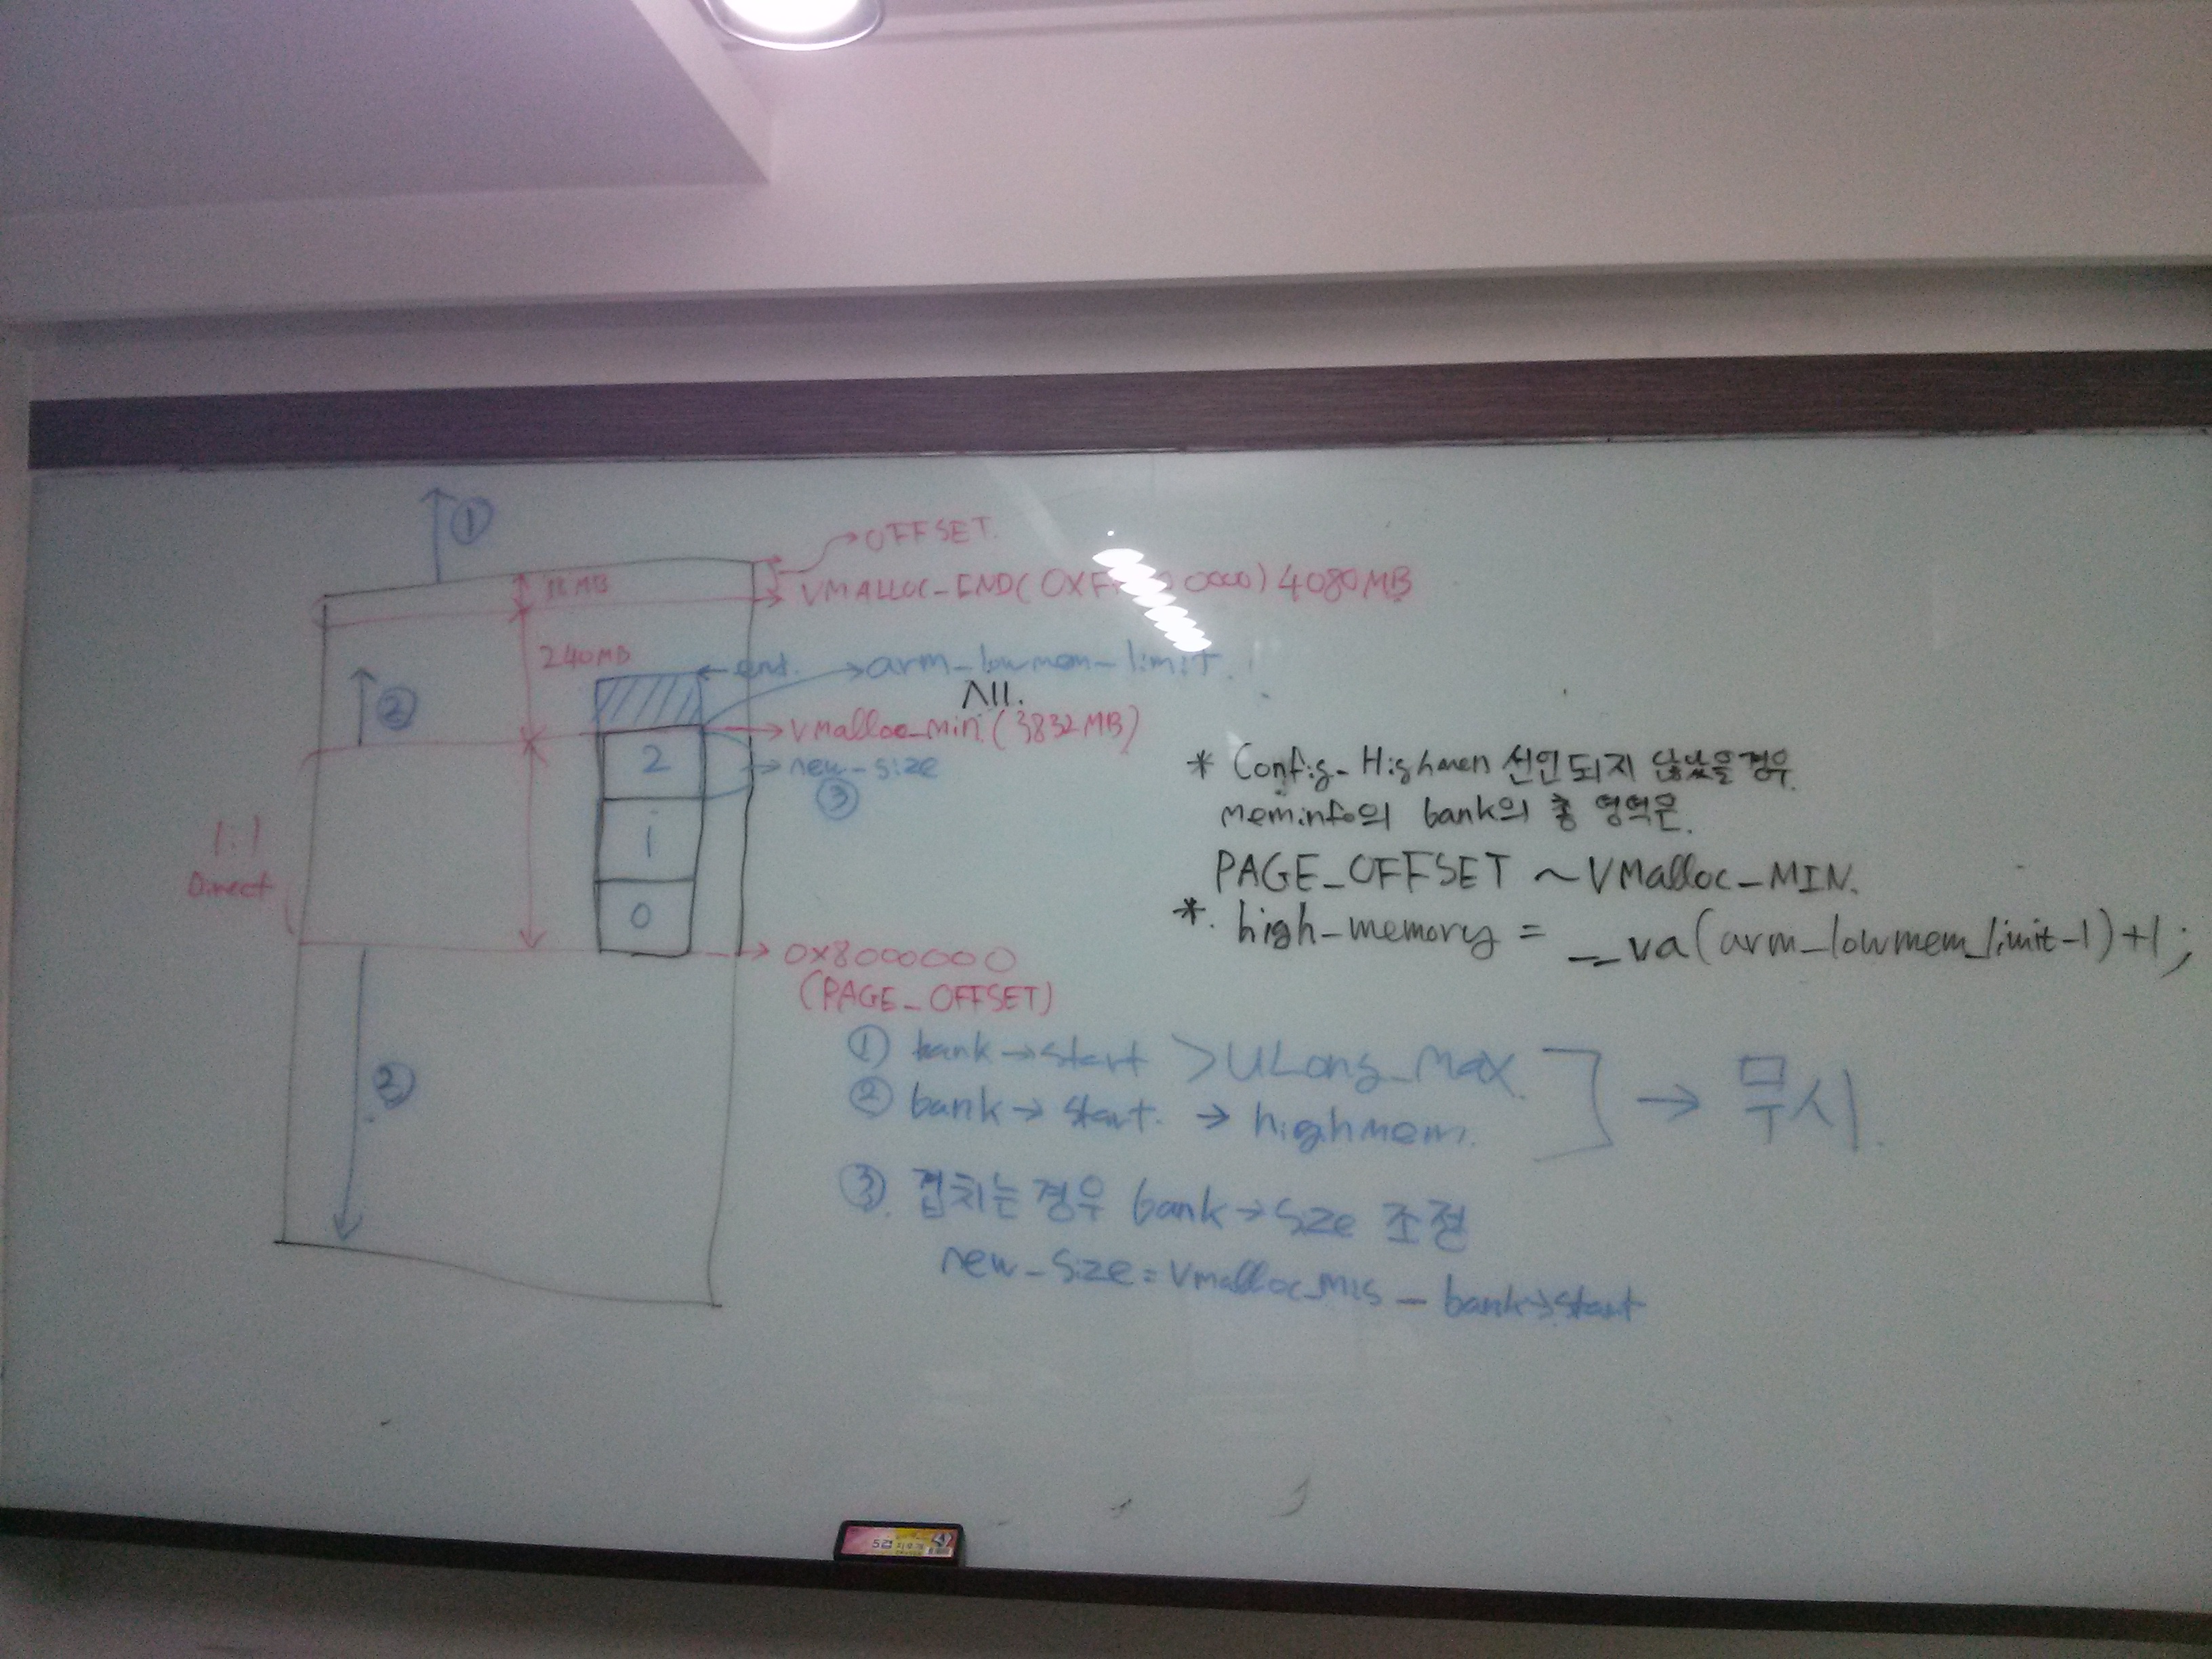 ①
OFFSET.
VMALLOC_END(0XF 0000) 4080MB
240MB
← end. → arm_lowmem_limit.
All.
②
Vmalloc_min. (3832MB)
2
new_size
③
1
0
1:1
Direct
0X8000000
(PAGE_OFFSET)
②
* Config_Highmen 선언되지 않았을경우.
meminfo의 bank의 총 영역은.
PAGE_OFFSET ~ VMalloc_MIN.
*. high_memory = __va(arm_lowmem_limit-1)+1;
① bank→start > ULong_Max.
② bank→ start. → highmem.
→ 무시.
③. 겹치는경우 bank→size 조정
new_size = Vmalloc_Min - bank→start